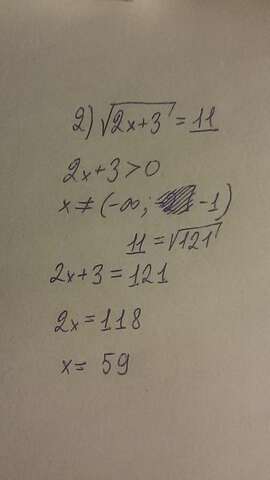 2) √2x+3 = 11
2x+3>0
x≠(-∞; -1)
11 = √121
2x+3 = 121
2x = 118
x = 59